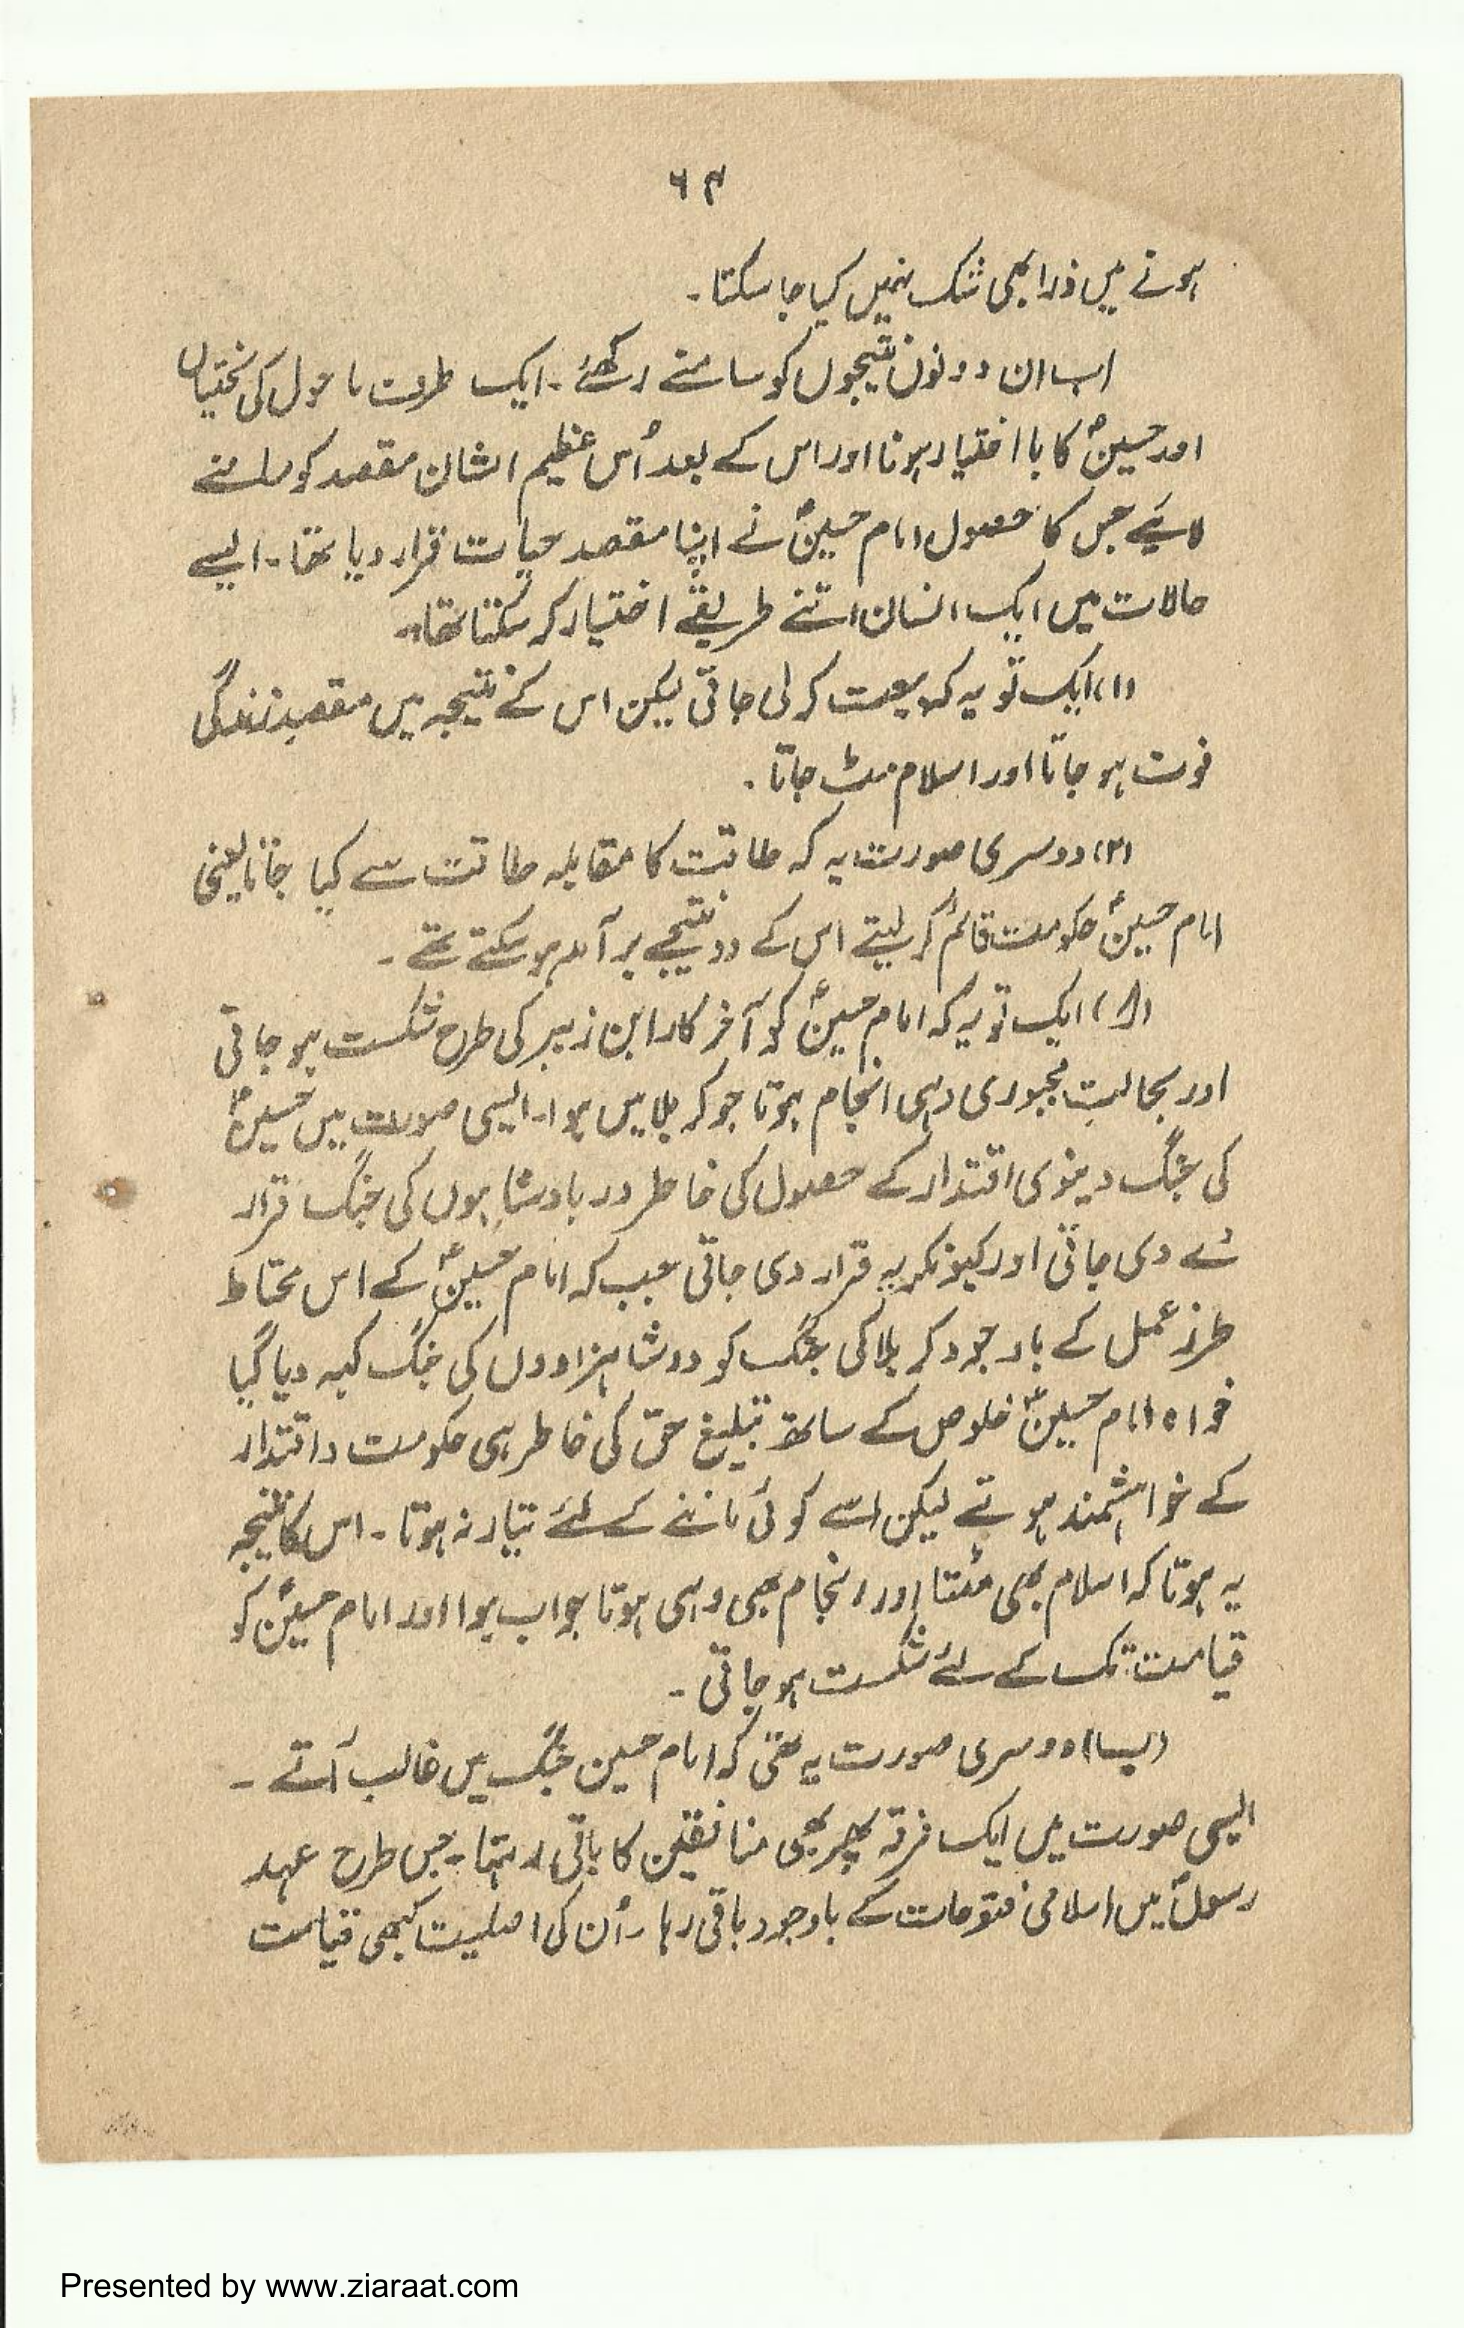 ۶۴
ہونے میں ذرا بھی شک نہیں کیا جا سکتا۔
اب ان دونوں نتیجوں کو سامنے رکھئے۔ ایک طرف ماحول کی سختیاں
اور حسینؑ کا با اختیار ہونا اور اس کے بعد اُس عظیم الشان مقصد کو سامنے
لائیے جس کا حصول امام حسینؑ نے اپنا مقصدِ حیات قرار دیا تھا۔ ایسے
حالات میں ایک انسان اتنے طریقے اختیار کر سکتا تھا۔
(۱) ایک تو یہ کہ بیعت کر لی جاتی لیکن اس کے نتیجہ میں مقصدِ زندگی
فوت ہو جاتا اور اسلام مٹ جاتا۔
(۲) دوسری صورت یہ کہ طاقت کا مقابلہ طاقت سے کیا جاتا یعنی
امام حسینؑ حکومت قائم کر لیتے اس کے دو نتیجے برآمد ہو سکتے تھے۔
(ا) ایک تو یہ کہ امام حسینؑ کو آخر کار ابن زبیر کی طرح شکست ہو جاتی
اور بحالتِ مجبوری وہی انجام ہوتا جو کربلا میں ہوا۔ ایسی صورت میں حسینؑ
کی جنگ دینوی اقتدار کے حصول کی خاطر دو بادشاہوں کی جنگ قرار
دے دی جاتی اور کیونکر یہ قرار دی جاتی جب کہ امام حسینؑ کے اس محتاط
طرزِ عمل کے باوجود کربلا کی جنگ کو دو شاہزادوں کی جنگ کہہ دیا گیا
خواہ امام حسینؑ خلوص کے ساتھ تبلیغ حق کی خاطر ہی حکومت و اقتدار
کے خواہشمند ہوتے لیکن اسے کوئی ماننے کے لئے تیار نہ ہوتا۔ اس کا نتیجہ
یہ ہوتا کہ اسلام بھی مٹتا اور انجام بھی وہی ہوتا جو اب ہوا اور امام حسینؑ کو
قیامت تک کے لئے شکست ہو جاتی۔
(ب) دوسری صورت یہ تھی کہ امام حسین جنگ میں غالب آتے۔
ایسی صورت میں ایک فرقہ پھر بھی منافقین کا باقی رہتا۔ جس طرح عہد
رسولؐ میں اسلامی فتوحات کے باوجود باقی رہا۔ اُن کی اصلیت کبھی قیامت
Presented by www.ziaraat.com